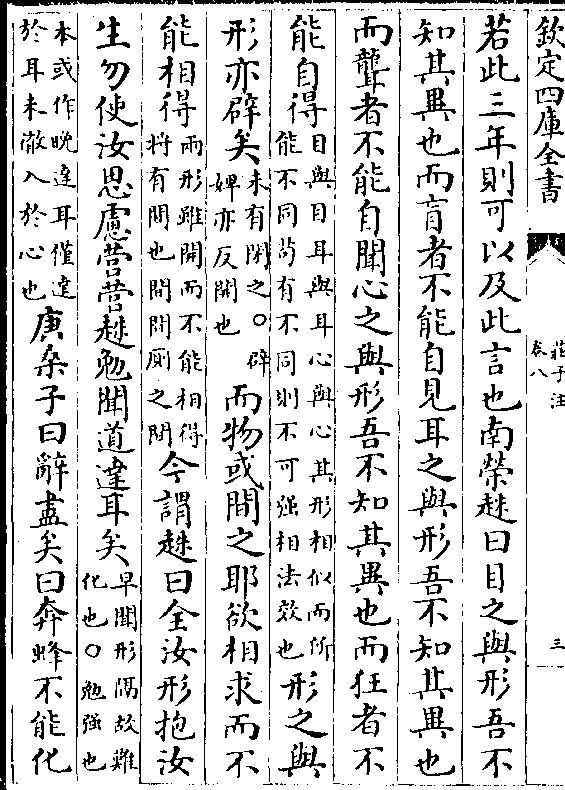 欽定四庫全書
莊子注
卷八
三
若此三年則可以及此言也南榮趎曰目之與形吾不
知其異也而盲者不能自見耳之與形吾不知其異也
而聾者不能自聞心之與形吾不知其異也而狂者不
能自得目與目耳與耳心與心其形相似而所能不同苟有不同則不可强相法效也形之與
形亦辟矣未有閉之○辟婢亦反開也而物或間之耶欲相求而不
能相得兩形雖開而不能相得将有間也間間厠之間今謂趎曰全汝形抱汝
生勿使汝思慮營營趎勉聞道達耳矣早聞形隔故難化也○勉强也
本或作晚達耳僅達於耳未徹入於心也庚桑子曰辭盡矣曰奔蜂不能化